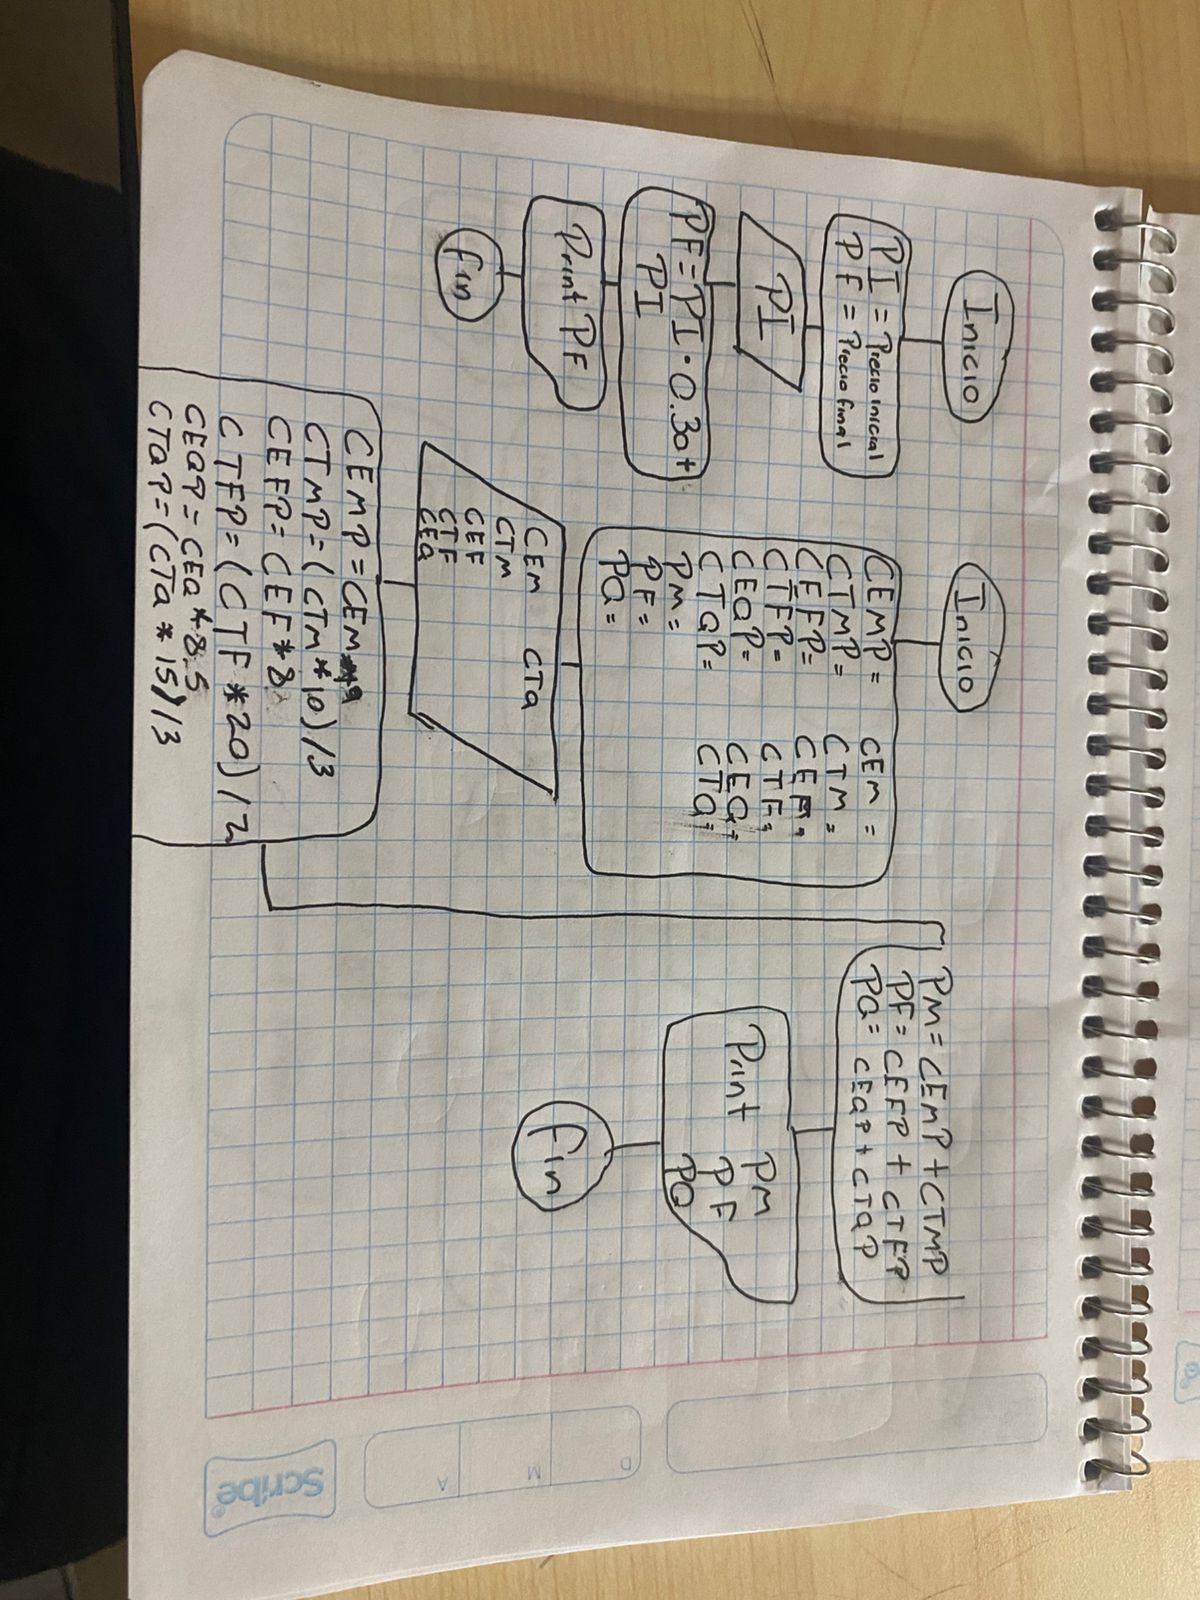 Inicio
PI = Precio inicial
PF = Precio final
PI
PF = PI · 0.30 +
PI
Print PF
Fin
Inicio
CEMP = CEM =
CTMP = CTM =
CEFP = CEF =
CTFP = CTF =
CEQP = CEQ =
CTQP = CTQ =
PM =
PF =
PQ =
CEM CTA
CTM
CEF
CTF
CEQ
CEMP = CEM * 9
CTMP = (CTM * 10) / 3
CEFP = CEF * 8
CTFP = (CTF * 20) / 2
CEQP = CEQ * 8.5
CTQP = (CTA * 15) / 3
PM = CEMP + CTMP
PF = CEFP + CTFP
PQ = CEQP + CTQP
Print PM
PF
PQ
Fin
D
M
A
Scribe